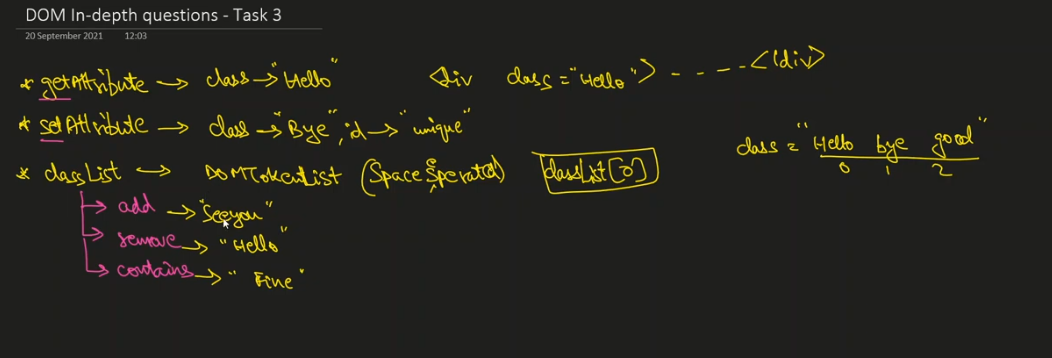 DOM In-depth questions - Task 3
20 September 2021 12:03
* getAttribute → class → "Hello" <div class="Hello"> - - - - </div>
* setAttribute → class → "Bye", id → "unique"
class = "Hello bye good"
0 1 2
* classList → DOMTokenList (Space Seperated) classList[0]
→ add → "Seeyou"
→ remove → "Hello"
→ contains → "Fine"